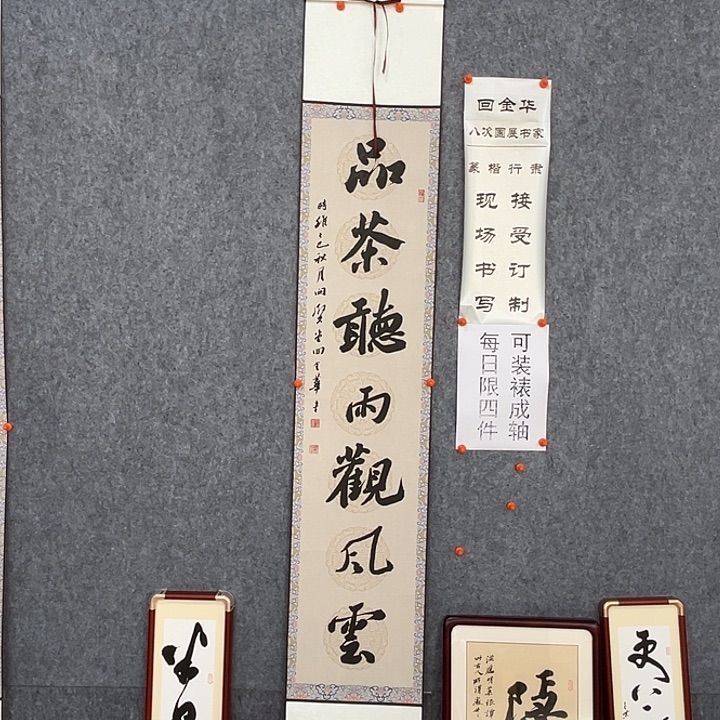 品茶聽雨觀風雲
時維乙巳秋月向賢堂回金華書
回金华
八次国展书家
篆楷行隶
接受订制
现场书写
可装裱成轴
每日限四件